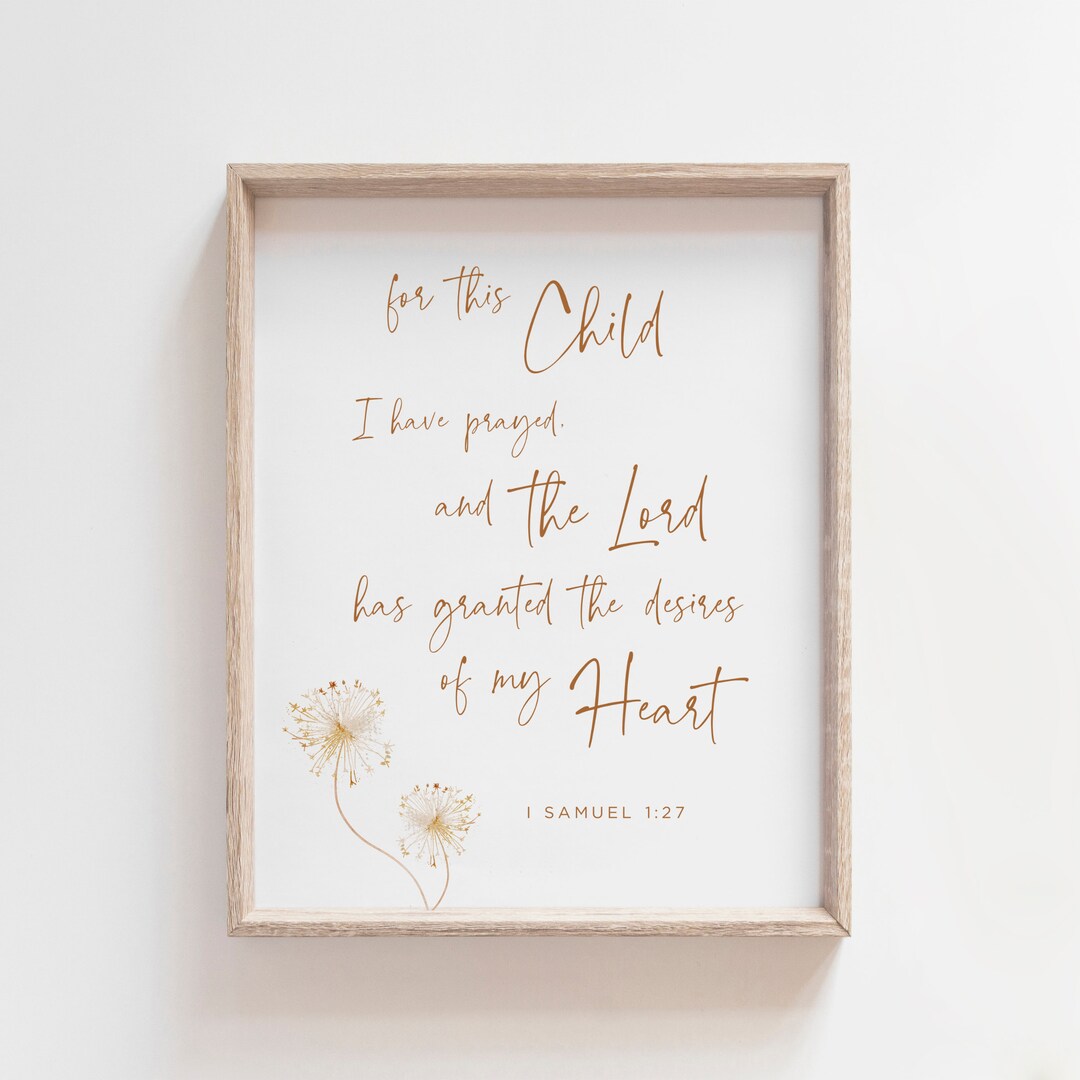 for this Child
I have prayed,
and the Lord
has granted the desires
of my Heart
I SAMUEL 1:27